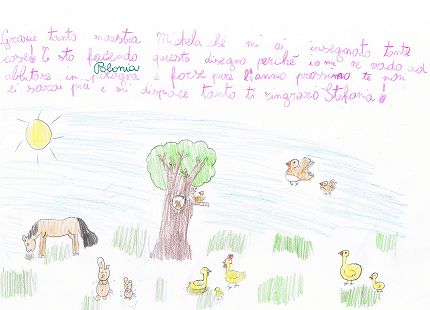 Grazie tanto maestra Michela ché mi ai insegnato tante
cose! E sto facendo questo disegno perché io me ne vado ad
Polonia
abbitare in pologna e forse pure l'anno prossimo te non
ci sarai più e mi dispiace tanto ti ringrazio Stefania!